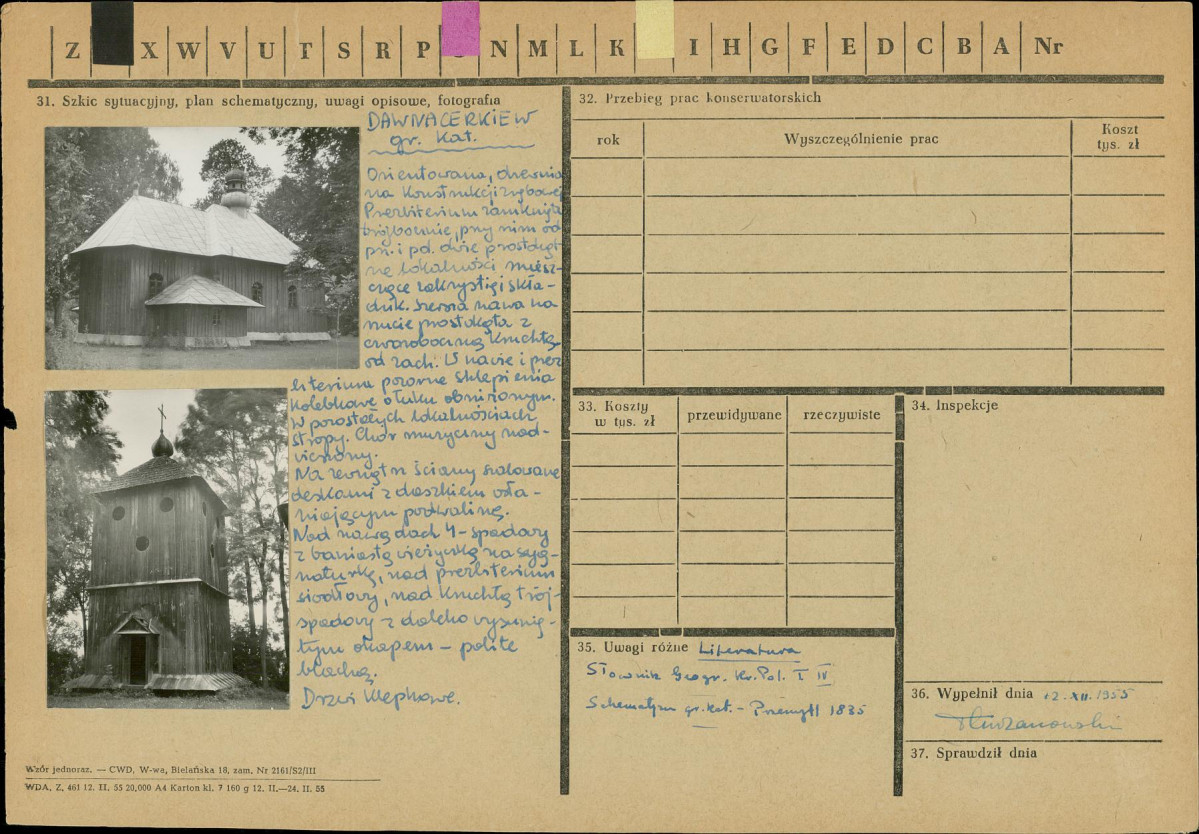 Z X W V U T S R P N M L K I H G F E D C B A Nr
31. Szkic sytuacyjny, plan schematyczny, uwagi opisowe, fotografia
DAWNA CERKIEW
gr. kat.
Orientowana, drewnia
na konstrukcji zrębowej
Prezbiterium zamknięte
trójbocznie, przy nim od
pn. i pd. dwie prostokąt
ne lokalności miesz-
czące zakrystię i skła-
dzik. Szersza nawa na
rzucie prostokąta z
czworoboczną kruchtą
od zach. W nawie i prez
biterium pozorne sklepienia
kolebkowe o łuku obniżonym.
W pozostałych lokalnościach
stropy. Chór muzyczny nad-
wieszony.
Na zewnątrz ściany szalowane
deskami z daszkiem osła-
niającym podwalinę.
Nad nawą dach 4-spadowy
z baniastą wieżyczką na syg-
naturkę, nad prezbiterium
siodłowy, nad kruchtą trój-
spadowy z daleko wysunię-
tym okapem – pobite
blachą.
Drzwi klepkowe.
Wzór jednoraz. — CWD, W-wa, Bielańska 18, zam. Nr 2161/S2/III
WDA, Z. 461 12. II. 55 20,000 A4 Karton kl. 7 160 g 12. II.—24. II. 55
32. Przebieg prac konserwatorskich
rok Wyszczególnienie prac Koszt
tys. zł
33. Koszty
w tys. zł
przewidywane rzeczywiste
34. Inspekcje
35. Uwagi różne Literatura
Słownik Geogr. Kr. Pol. T IV
Schematyzm gr. kat. – Przemyśl 1835
36. Wypełnił dnia 12. XII. 1955
37. Sprawdził dnia